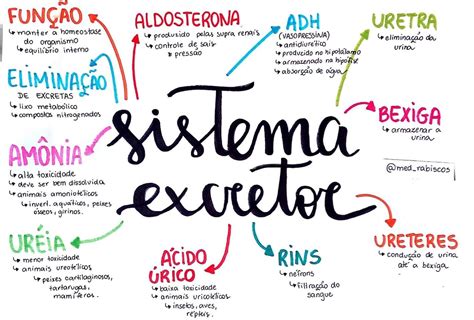 FUNÇÃO
↳ manter a homeostase
do organismo
↳ equilíbrio interno
ALDOSTERONA
↳ produzido pelas supra renais
↳ controle de sais
↳ pressão
ADH
(VASOPRESSINA)
↳ antidiurético
↳ produzido no hipotálamo
↳ armazenado na hipófise
↳ absorção de água
URETRA
↳ eliminação da
urina
ELIMINAÇÃO
DE EXCRETAS
↳ lixo metabólico
↳ compostos nitrogenados
BEXIGA
↳ armazenar a
urina
@med_rabiscos
sistema
excretor
AMÔNIA
↳ alta toxicidade
↳ deve ser bem dissolvida
↳ animais amoniotélicos
↳ invert. aquáticos, peixes
ósseos, girinos.
URÉIA
↳ menor toxicidade
↳ animais ureotélicos
↳ peixes cartilaginosos,
tartarugas,
mamíferos.
ÁCIDO
ÚRICO
↳ baixa toxicidade
↳ animais uricotélicos
↳ insetos, aves,
répteis.
RINS
↳ néfrons
↳ filtração do
sangue
URETERES
↳ condução de urina
até a bexiga